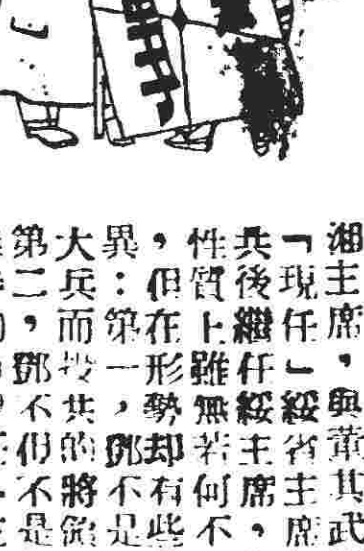 湘主席，與董其武
「現任」綏省主席
共後繼任綏主席，
性質上雖無若何不
，但在形勢却有些
異：第一，鄧不是
大兵而投共的將領
第二，鄧不但不是